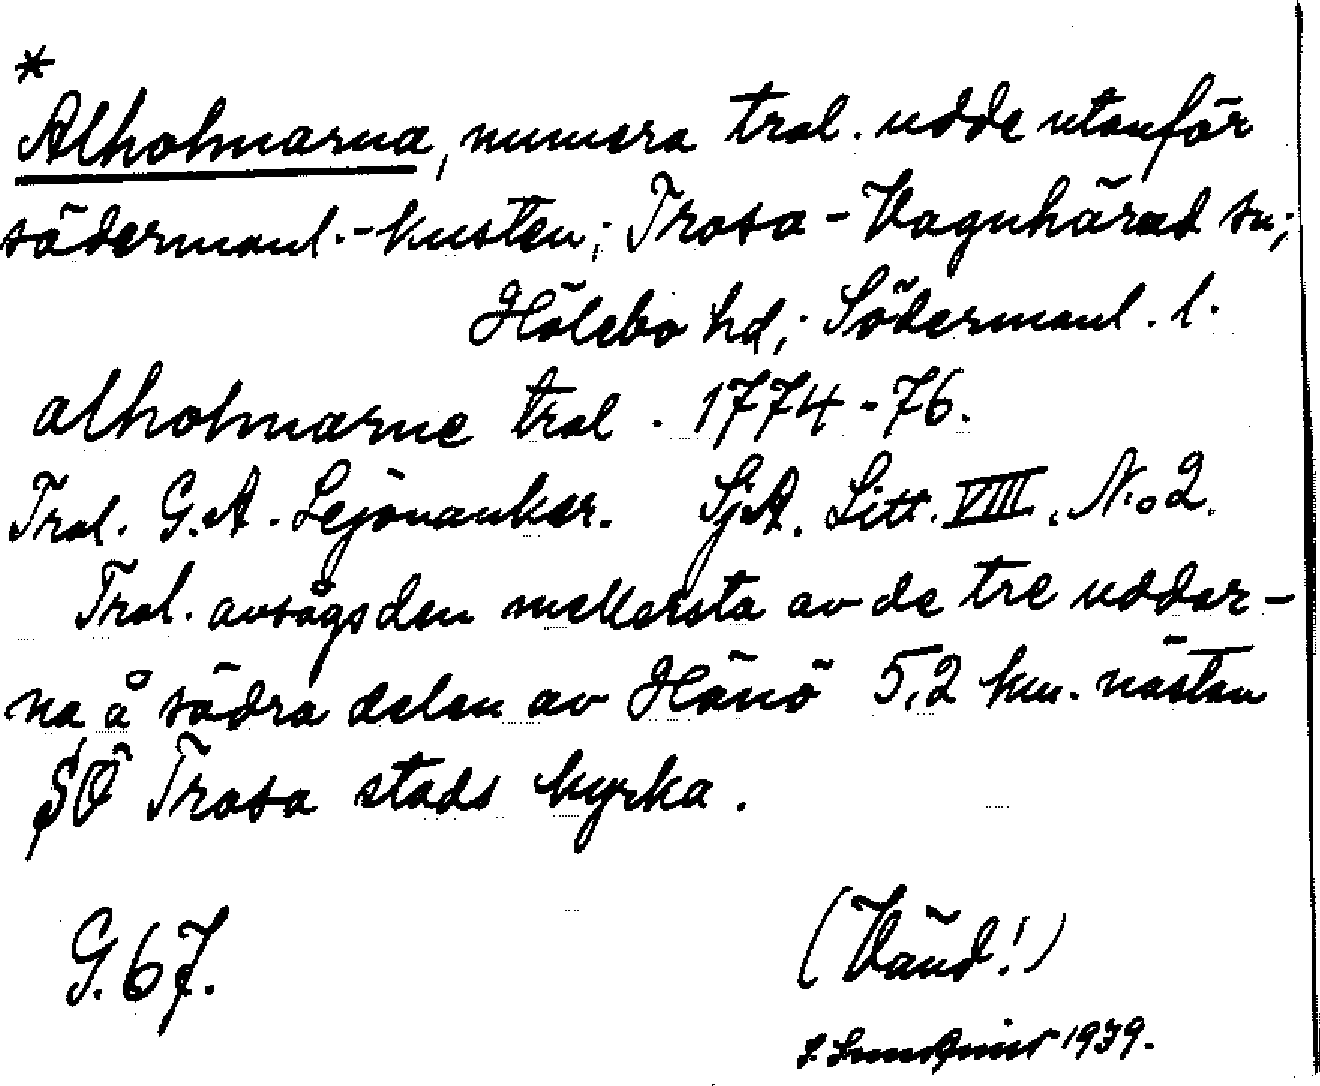 *
Alholmarna, numera trol. udde utanför
södermanl.-kusten; Trosa-Vagnhärad sn;
Hölebo hd; Södermanl. l.
alholmarne trol. 1774-76.
Trol. G.A. Lejonanker. SjA. Litt. VIII. No 2.
Trol. avsågs den mellersta av de tre uddar-
na å södra delen av Hänö 5,2 km. nästan
SÖ Trosa stads kyrka.
G. 67.
(Vänd!)
1939.